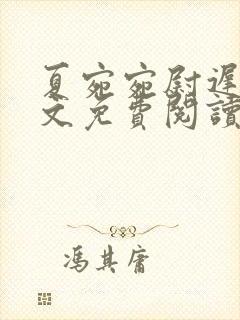 夏宛宛尉遲
文免費閱讀
馮其庸